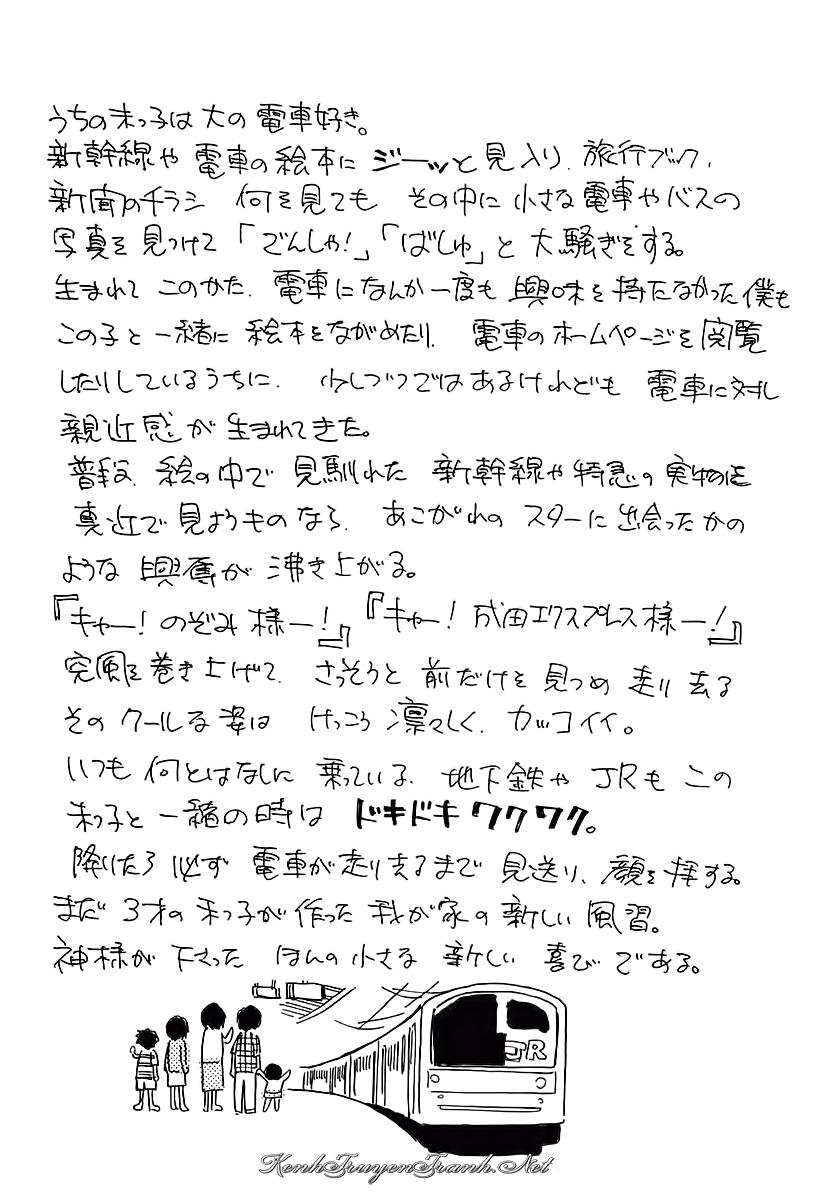 うちの末っ子は大の電車好き。
新幹線や電車の絵本にジーッと見入り、旅行ブック、
新聞のチラシ 何を見ても その中に小さな電車やバスの
写真を見つけて「でんしゃ!」「ばしゅ」と大騒ぎをする。
生まれてこのかた、電車になんか一度も興味を持たなかった僕も
この子と一緒に絵本をながめたり、電車のホームページを閲覧
したりしているうちに、少しづつではあるけれども電車に対し
親近感が生まれてきた。
普段、絵の中で見馴れた新幹線や特急の実物を
真近で見ようものなら、あこがれのスターに出会ったかの
ような興奮が沸き上がる。
『キャー!のぞみ様ー!』『キャー!成田エクスプレス様ー!』
突風を巻き上げて、さっそうと前だけを見つめ走り去る
そのクールな姿は けっこう凛々しく、カッコイイ。
いつも何とはなしに乗っている、地下鉄やJRもこの
末っ子と一緒の時はドキドキワクワク。
降りたら必ず電車が走り去るまで見送り、顔を揮する。
まだ3才の末っ子が作った我が家の新しい風習。
神様が下さった ほんの小さな新しい喜びである。
JR
KenhTruyenTranh.Net